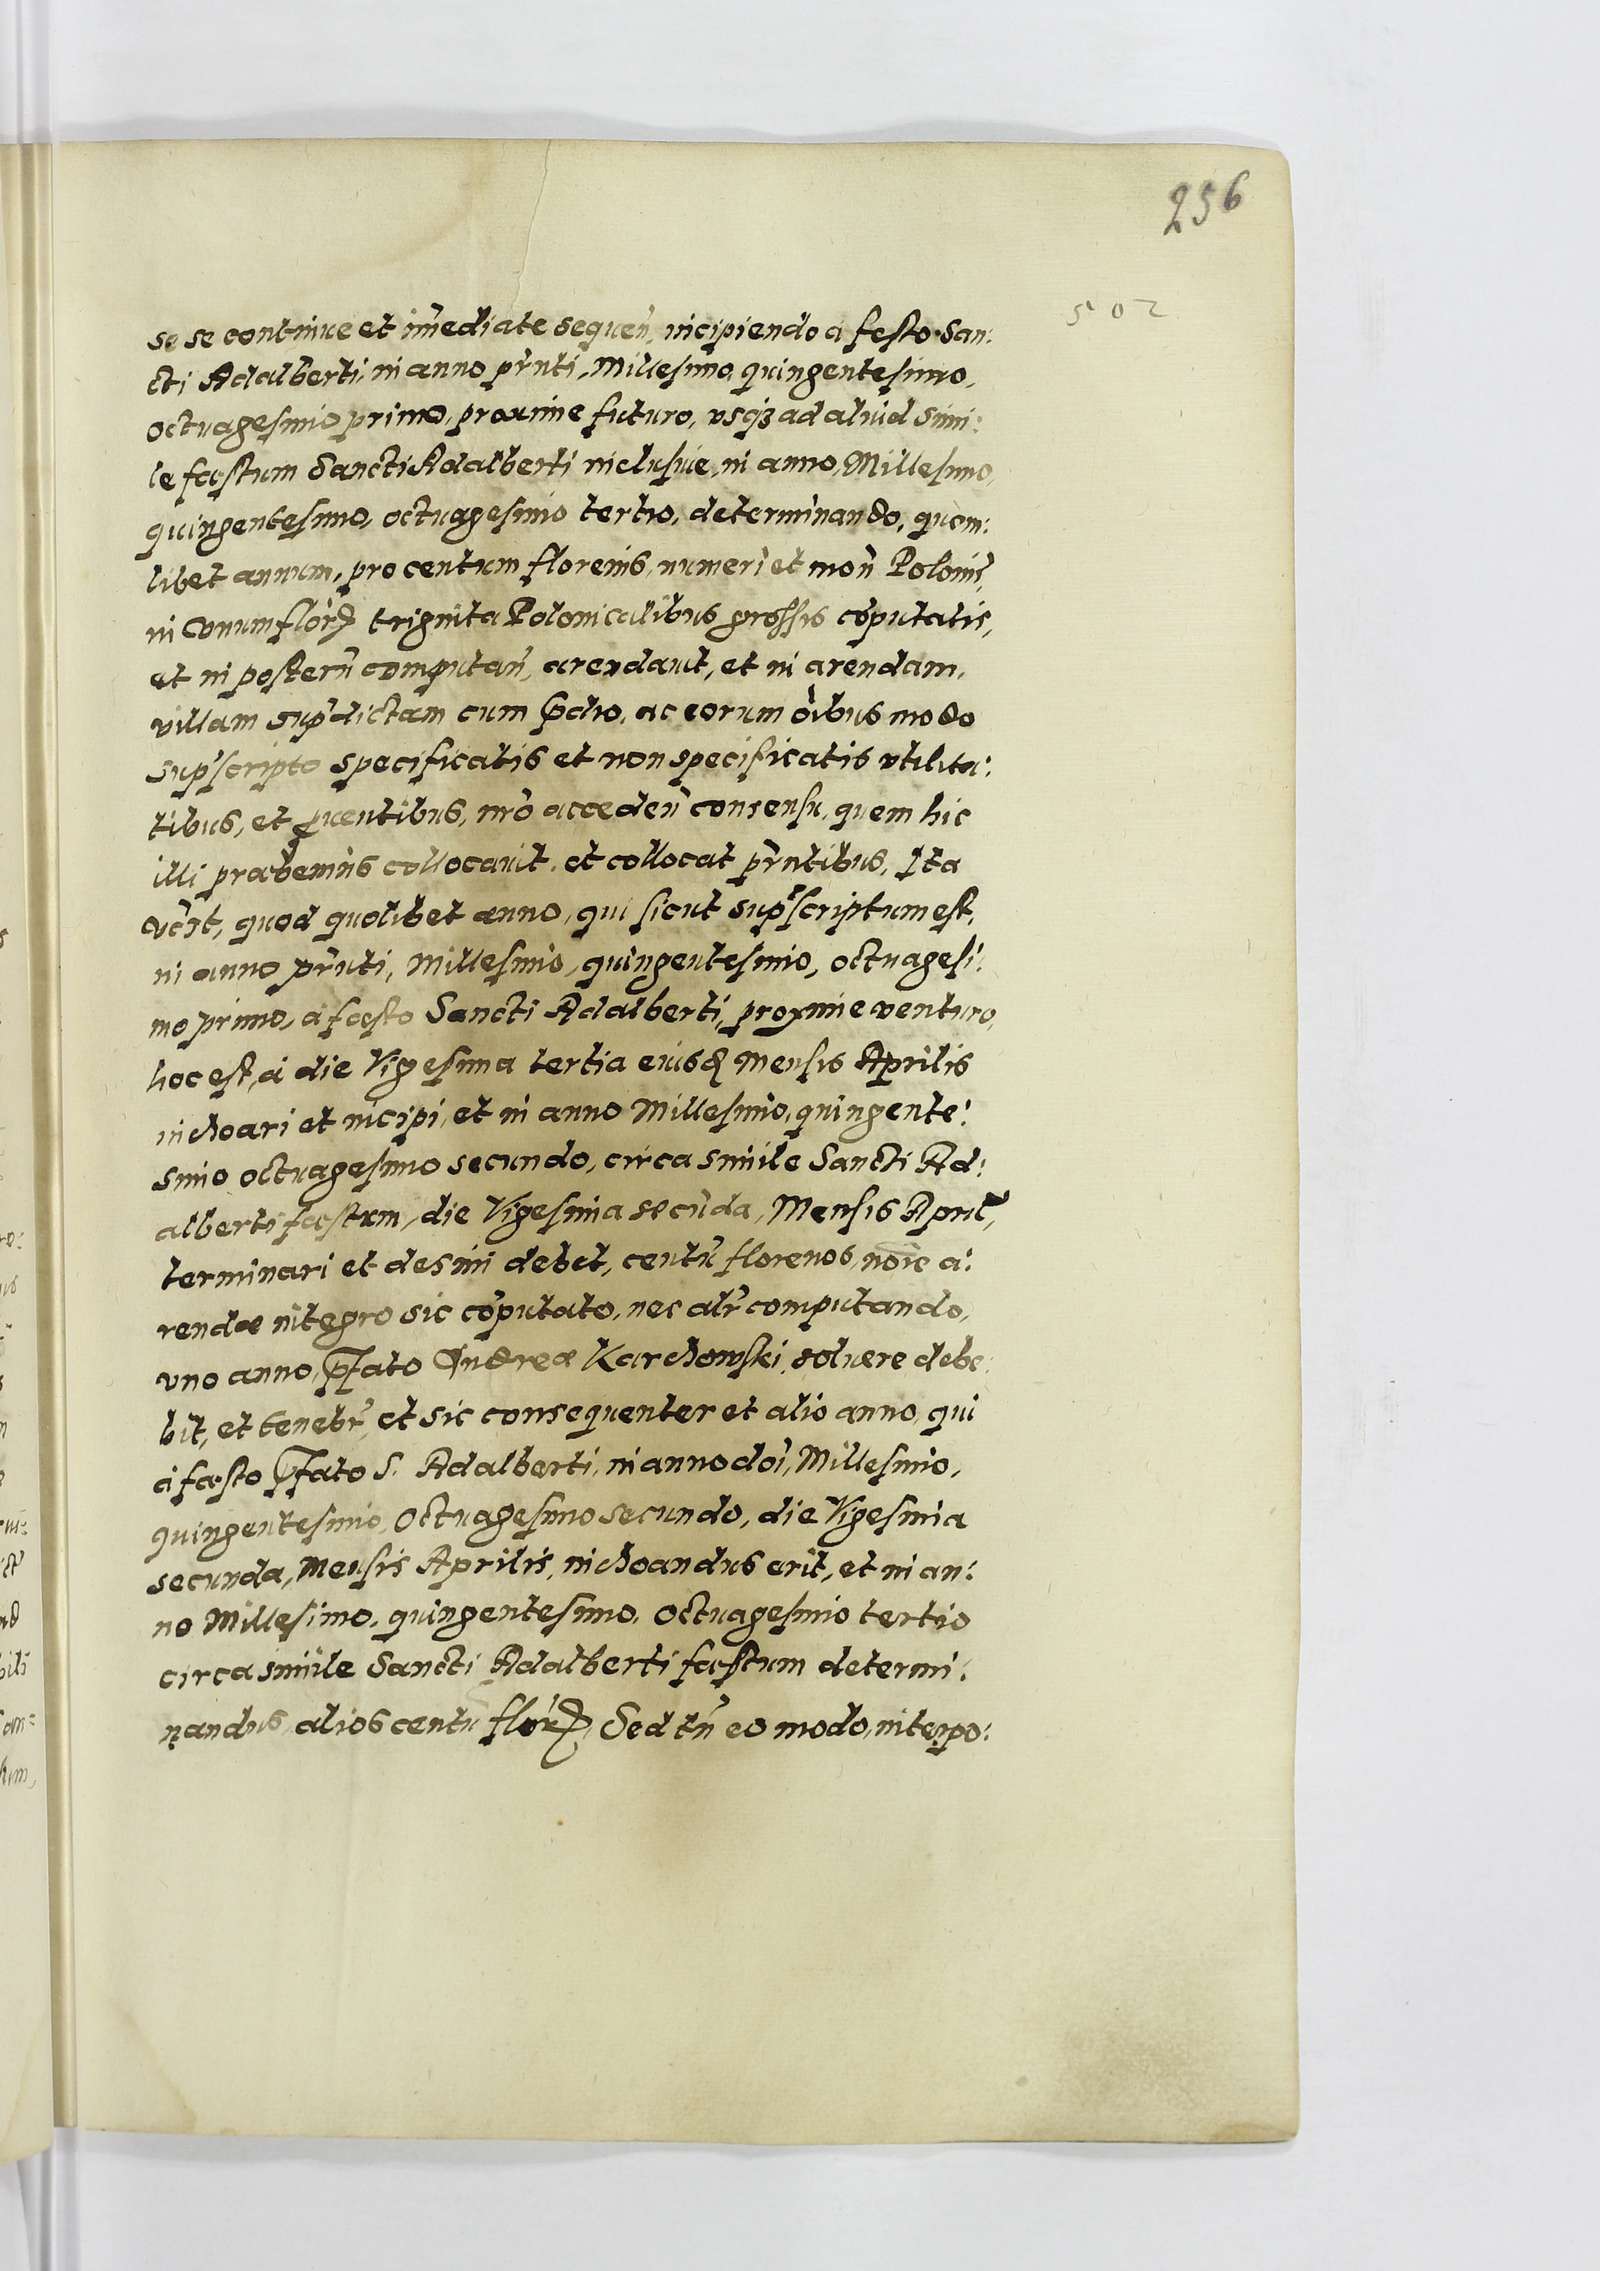 256
502
se se continue et im̃ediate sequeñ, incipiendo a festo San:
cti Adalberti, in anno pr̃nti, Millesimo quingentesimo,
octuagesimo primo, proxime futuro, vsqꝫ ad aliud simi:
le fæstum Sancti Adalberti inclusiue, in anno, Millesimo,
quingentesimo, octuagesimo tertio, determinando, quem:
libet annum, pro centum florenis, numeri et moñ Poloniꝭ,
in vnum flor̃ triginta Polonicalibus grossis cõputatis,
et in posterũ computañ, arendauit, et in arendam,
villam sup̃dictam cum p̃dio, ac eorum õibus modo
sup̃scripto specificatis et non specificatis vtilita:
tibus, et ꝓuentibus, nr̃o accedeñ consensu, quem hic
illi præbemus collocauit, et collocat pr̃ntibus, Ita
vc̃it, quod quolibet anno, qui sicut sup̃scriptum est,
in anno pr̃nti, Millesimo, quingentesimo, octuagesi:
mo primo, a fæsto Sancti Adalberti, proxime venturo,
hoc est, a die Vigesima tertia eiusd̃ Mensis Aprilis
inchoari et incipi, et in anno Millesimo, quingente:
simo octuagesimo secundo, circa simile Sancti Ad:
alberti fæstum, die Vigesima secũda, Mensis April̃,
terminari et desini debet, centũ florenos, noĩe a:
rendæ integro sic cõputato, nec alr̃ computando,
vno anno, p̃fato Andreæ Karchowski, soluere debe:
bit, et tenebr̃, et sic consequenter et alio anno, qui
a fæsto p̃fato S. Adalberti, in anno doĩ, Millesimo,
quingentesimo, Octuagesimo secundo, die Vigesima
secunda, Mensis Aprilis, inchoandus erit, et in an:
no Millesimo, quingentesimo, Octuagesimo tertio
circa simile Sancti Adalberti fæstum determi:
nandus, alios centũ flor̃, Sed tñ eo modo, interpo: